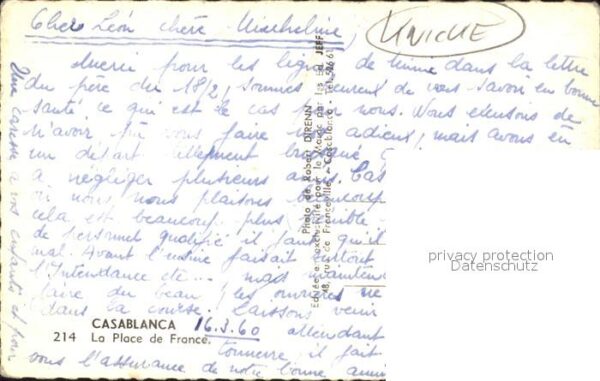 Cher Léon chère
UNICHE
Merci pour les lignes de Mimie dans la lettre
du père du 18/2, sommes heureux de vous savoir en bonne
santé ce qui est le cas pour nous. Nous excusons de
n'avoir pu vous faire nos adieux, mais avons eu
un départ tellement
à négliger plusieurs amis. Cas
où nous nous plaisons beaucoup
cela est beaucoup plus
de personnel qualifié il faut qu'il
mal. Avant l'usine faisait surtout
l'Intendance etc... mais mainten
faire du beau, les ouvrières ne
dans la course. Laissons venir
CASABLANCA 16.3.60 attendant
214 La Place de France.
tonnerre, il fait
vous l'assurance de notre bonne ami
Une caresse à vos enfants et pour
Photo de Robert
Editée en exclusivité pour le Maroc par les Ed. JEFF
48, rue de Franceville - Casablanca - Tél.
privacy protection
Datenschutz